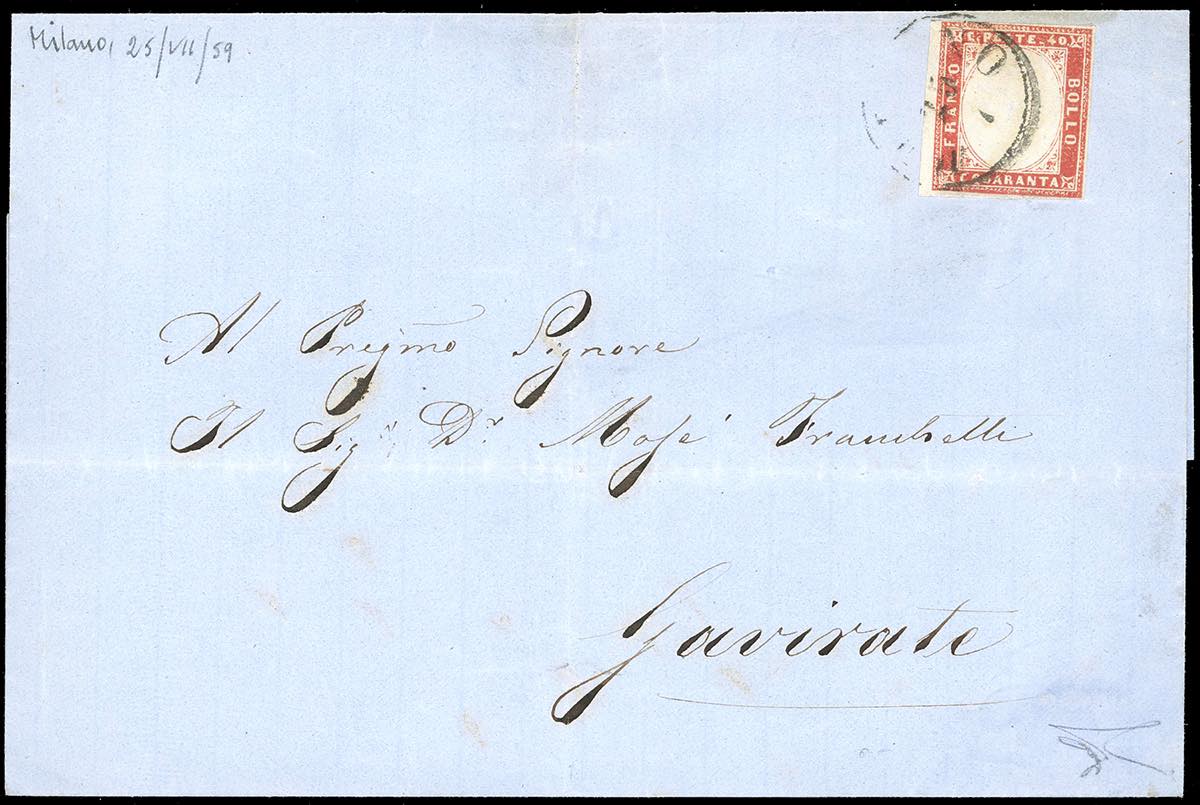 Milano, 25/VII/59
C. POSTE. 40
FRANCO
BOLLO
C. QUARANTA
Al Pregmō Signore
Il Sigr. Dr. Mosé Franchetti
Gavirate